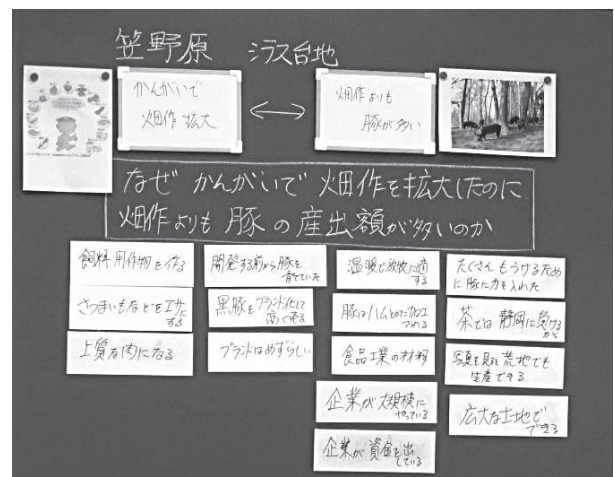 笠野原 シラス台地
かんがいで
畑作拡大
畑作よりも
豚が多い
なぜ かんがいで 畑作を拡大したのに
畑作よりも 豚の産出額が多いのか
飼料用作物を作る
さつまいもなどをエサに
する
上質な肉になる
開発する前から豚を
育てていた
黒豚をブランド化して
高く売る
ブランドはめずらしい
温暖で放牧に適
する
豚はハムとかに加工
される
食品工業の材料
企業が大規模に
やっている
企業が資金を出
している
たくさんもうけるため
に豚に力を入れた
茶では静岡に負ける
から
写真を見ると荒地でも
生産できる
広大な土地で
できる